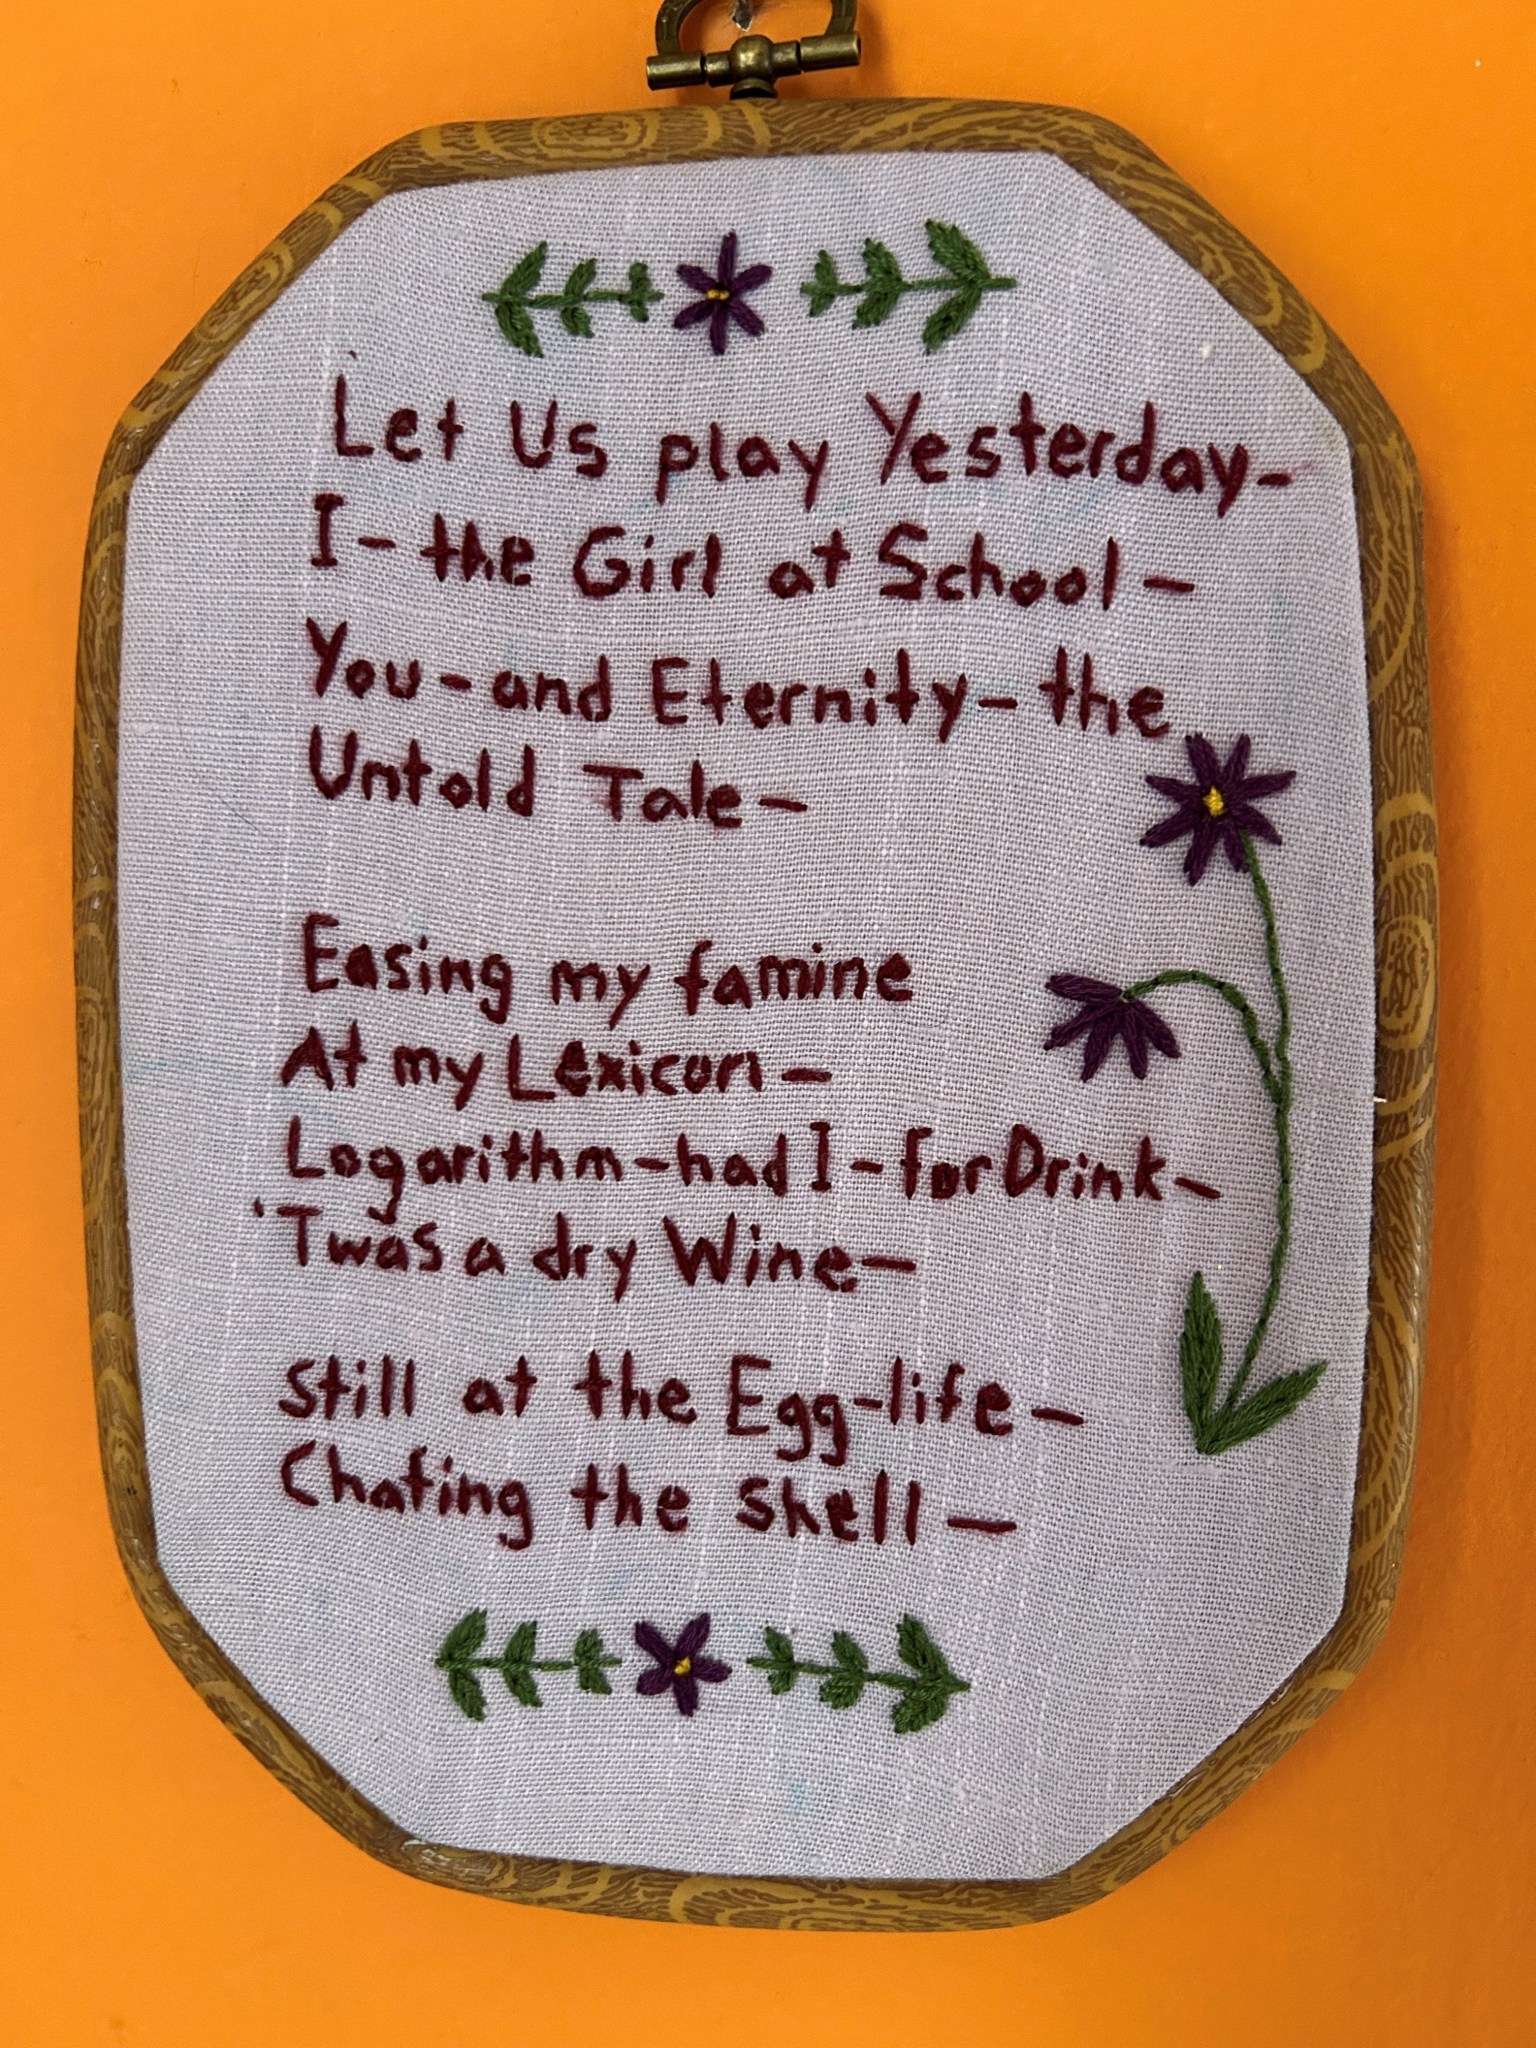 Let Us play Yesterday–
I– the Girl at School–
You–and Eternity– the
Untold Tale–
Easing my famine
At my Lexicon–
Logarithm–had I–for Drink–
'Twas a dry Wine–
Still at the Egg-life–
Chafing the Shell–